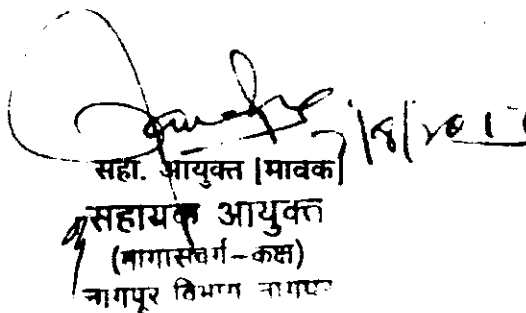 सहा. आयुक्त (मावक)
सहायक आयुक्त
(मागासवर्ग-कक्ष)
नागपूर विभाग नागपूर